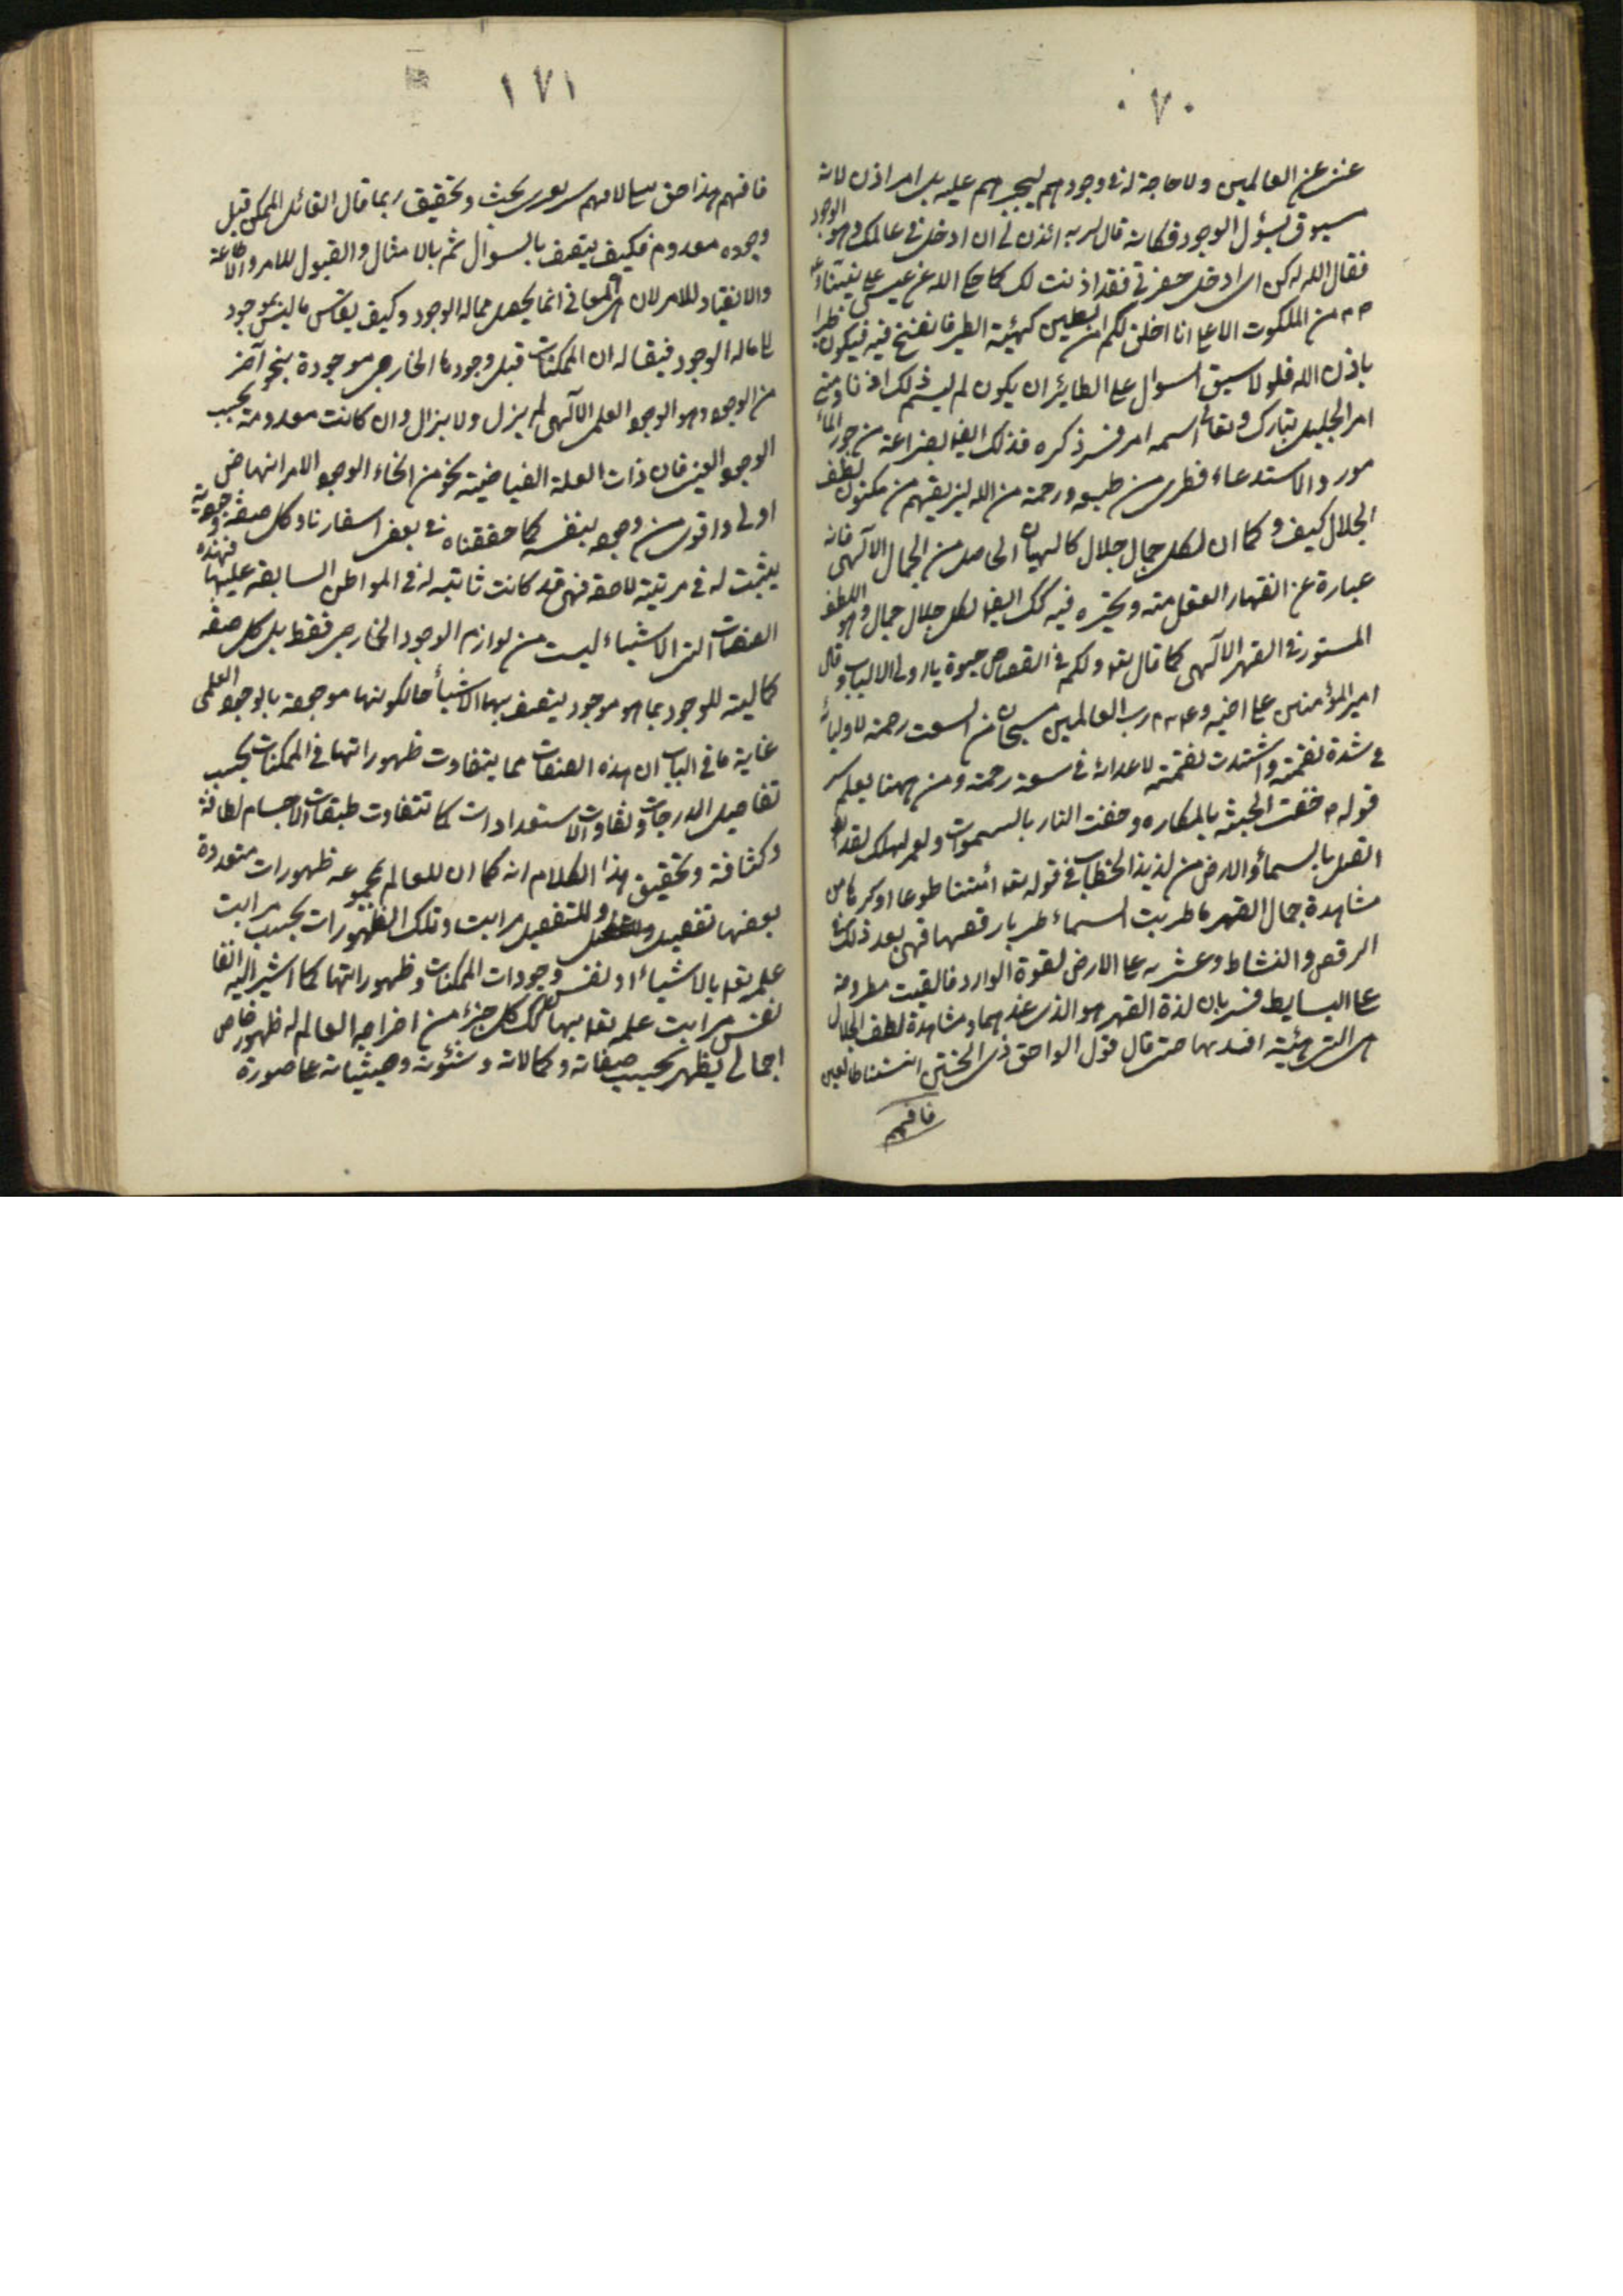 ٠٧٠
غنى عن العالمين ولا حاجة له فى وجودهم ليجبرهم عليه بل امر اذن لانه
مسبوق بسؤل الوجود فكانه قال لربه ائذن لى ان ادخل فى عالمك وهو الوجود
فقال الله له كن اى ادخل حضرتى فقد اذنت لك كما حكى الله عن عيسى على نبينا و
من الملكوت الاعلى انا اخلق لكم من الطين كهيئة الطير فانفخ فيه فيكون طيرا
باذن الله فلولا سبق السوال على الطائر ان يكون لم ليسم ذلك اذنا ومن
امر الجليل تبارك وتعالى اسمه امر فسر ذكره فذلك ايضا بضراعة من
مورد الاستدعاء فطرى من طيبه ورحمة من الله ليزيقهم من مكنون لطف
الجلال كيف وكما ان لكل جمال جلال كالهيمان الحاصل من الجمال الالهى فانه
عبارة عن انقهار العقل منه وتحيره فيه كك ايضا لكل جلال جمال وهو اللطف
المستور فى القهر الالهى كما قال تعه ولكم فى القصاص حيوة يا اولى الالباب وقال
امير المؤمنين على اخيه وعليه رب العالمين سبحان من اتسعت رحمته لاوليائه
فى شدة نقمته واشتدت نقمته لاعدائه فى سعة رحمته ومن ههنا يعلم سر
قوله حفت الجنة بالمكاره وحفت النار بالشهوات ولعمر الهك لقد
اتصل بالسماء والارض من لذيذ الخطاب فى قوله تعه ائتنا طوعا او كرها من
مشاهدة جمال القهر ما طربت السماء طربا رقصها فهى بعد ذلك فى
الرقص والنشاط وغشى به على الارض لقوة الوارد فالقيت مطروحة
على البسايط فسريان لذة القهر هو الذى عند هما ومشاهدة لطف الجلال
هى التى هيئة افسدتها حتى قال قول الواحق ذى الخنتين اتتنا طائعين
فافهم
١٧١
فافهم هذا حق يتالافهم سرعورى بحث وتحقيق ربما قال القائل الممكن قبل
وجوده معدوم فكيف يتصف بالسوال ثم بالامتثال والقبول للامر والاطاعة
والانقياد للامر لان هذه المعانى انما يحصل مما له الوجود وكيف يقاس ما ليس بموجود
على ما له الوجود فيقا له ان الممكنات قبل وجودها الخارجى موجودة بنحو آخر
من الوجود وهو الوجود العلمى الالهى لم يزل ولا يزال وان كانت معدومة بحسب
الوجود العينى فان ذات العلة الفياضية بنحو من انحاء الوجود الامر انها ض
اولى واقوى من وجوده بنفسه كما حققناه فى بعض اسفارنا وكل صفة وجودية
يثبت له فى مرتبة لاحقة فهى قد كانت ثابتة له فى المواطن السابقة عليها فهذه
الصفات التى الاشياء ليست من لوازم الوجود الخارجى فقط بل كل صفة
كمالية للوجود بما هو موجود يتصف بها الاشياء حالكونها موجودة بالوجود العلمى
غاية ما فى الباب ان هذه الصفات مما يتفاوت ظهوراتها فى الممكنات بحسب
تفاصيل الدرجات وتفاوت الاستعدادات كما تتفاوت طبقات الاجسام لطافة
وكثافة وتحقيق هذا الكلام انه كما ان للعالم بمجموعه ظهورات متعددة
بعضها تفصيل وللتفصيل مراتب وتلك الظهورات بحسب مراتب
علمه تعه بالاشياء او لنفس وجودات الممكنات وظهوراتها كما اشير اليه انفا
نفس مراتب علمه تعه بها كذلك كل جزء من اجزاء العالم له ظهور خاص
اجمالى يظهر بحسب صفاته وكمالاته وشئونه وحيثياته على صورة